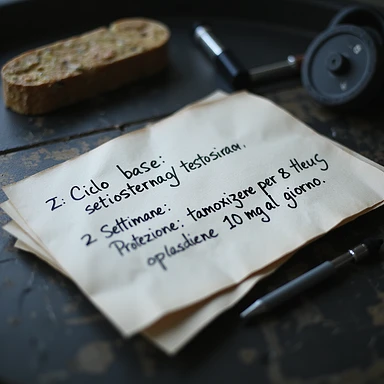 I: Ciclo base:
setiosternag/ testosiram.
2 Settimane:
Protezione: tamoxizere per 8 tleus
oplasdiene 10 mg al giorno.